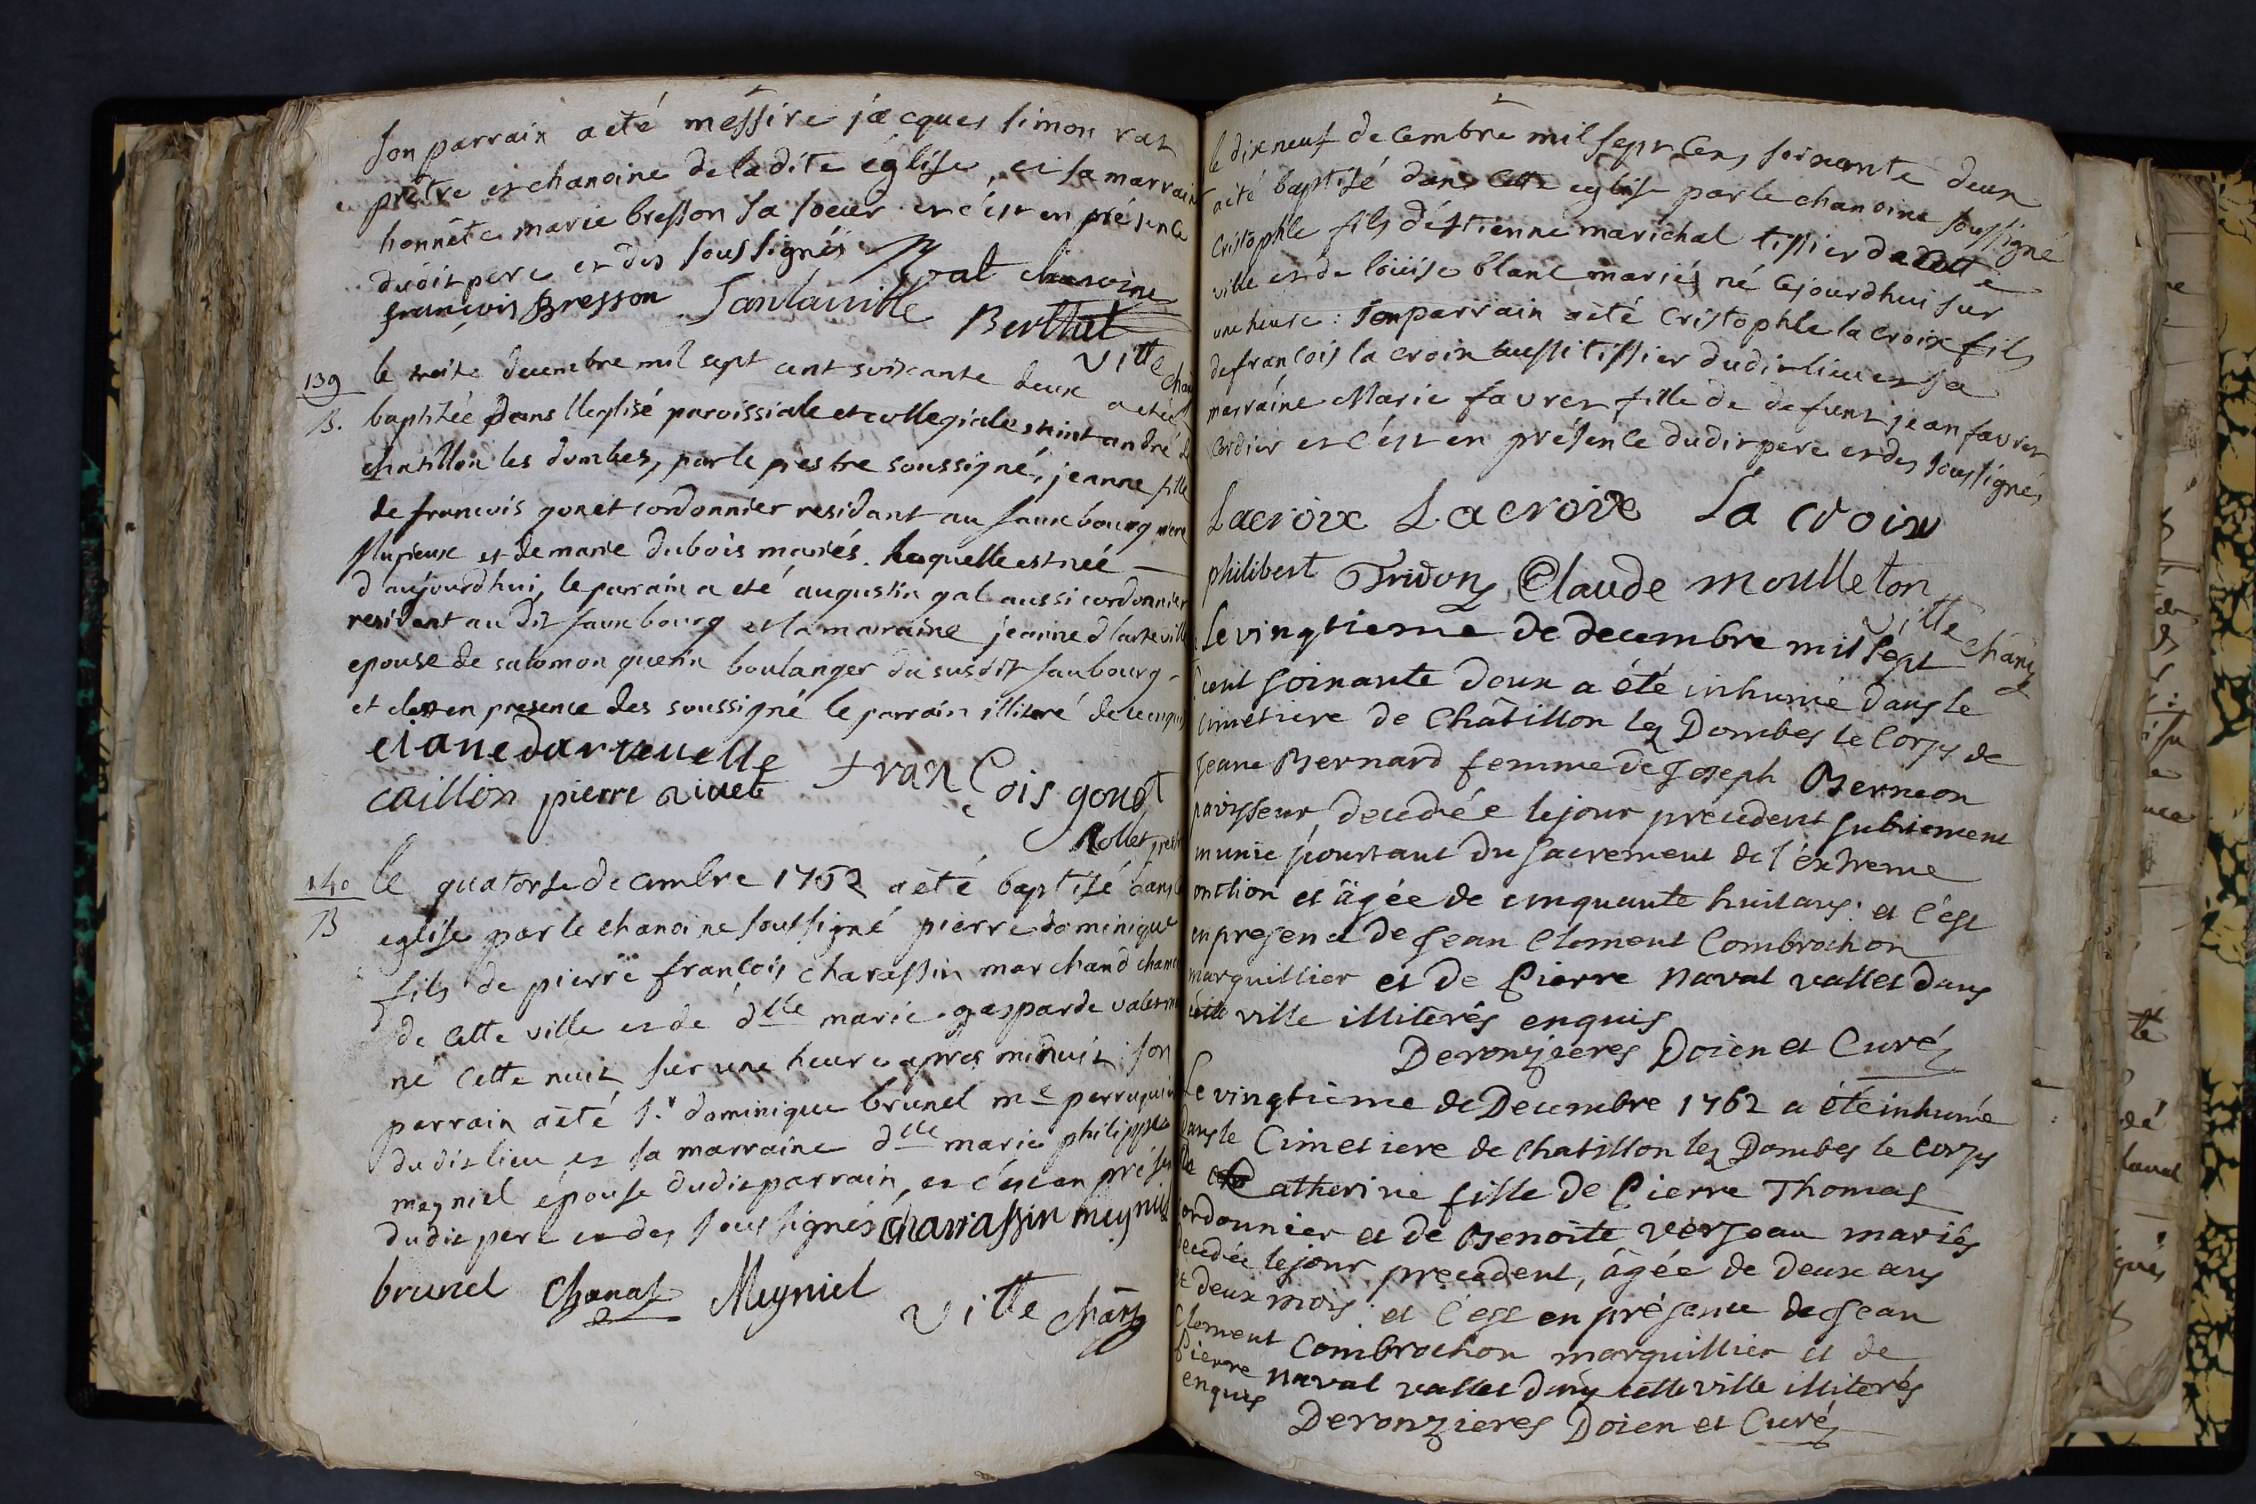 son parrain a eté messire jacques simon rat
prêtre et chanoine de la dite église, et sa marraine
honnête marie bresson sa soeur et c'est en présence
dudit pere et des soussignés
françois Bresson Rat chanoine
Berthet
Ville chan
139
B.
le treise decembre mil sept cent soixante deux a eté
baptisée dans l'eglise paroissiale et collegiale saint andré de
chatillon les dombes, par le prestre soussigné, jeanne fille
de francois gonet cordonnier residant au fauxbourg
et de marie dubois mariés. laquelle est née
d'aujourdhui, le parain a eté augustin gal aussi cordonnier
resident au dit fauxbourg et la maraine jeanne
epouse de salomon guerin boulanger du susdit faubourg
et c'est en presence des soussigné le parrain illiteré de ce enquis
caillon pierre rivet françois gonet
Rollet prestre
140
B
le quatorse decembre 1762 a eté baptisé dans
eglise par le chanoine soussigné pierre dominique
fils de pierre françois charassin marchand
de cette ville et de dlle marie gasparde
né cette nuit sur une heure apres minuit; son
parrain a eté sr dominique brunel me perruquier
dudit lieu et sa marraine dlle marie philippe
meyniel épouse dudit parrain, et c'est en présence
dudit pere et des soussignés Charrassin meyniel
brunel Chanal Meyniel
Ville chan
le dix neuf decembre mil sept cens soixante deux
a eté baptisé dans cette eglise par le chanoine soussigné
Cristophle fils d'éstienne marichal tissier de cette
ville et de loüise blanc mariés né cejourdhui sur
une heure: son parrain a eté Cristophle la croix fils
de françois la croix aussi tissier dudit lieu et sa
marraine Marie favret fille de defunt jean favret
cordier et c'est en présence dudit pere et des soussignés
Lacroix Lacroix La croix
philibert Tridon Claude moulleton
Ville chan
Le vingtieme de decembre mil sept
cent soixante deux a été inhumé dans le
cimetiere de Châtillon lez Dombes le Corps de
Jeane Bernard femme de Joseph Berneon
decedée le jour precedent subitement
munie pourtant du sacrement de l'extreme
onction et âgée de cinquante huit ans: et c'est
en presence de Jean Clement Combrochon
marguillier et de Pierre Naval vallet dans
cette ville illiterés enquis
Deronzieres Doien et Curé
Le vingtieme de Decembre 1762 a été inhumé
dans le Cimetiere de Chatillon lez Dombes le corps
de Catherine fille de Pierre Thomas
cordonnier et de Benoite Verjeau mariés
decedée le jour precedent, âgée de deux ans
et deux mois: et c'est en présence de Jean
Clement Combrochon marguillier et de
Pierre Naval vallet dans cette ville illiterés
enquis
Deronzieres Doien et Curé